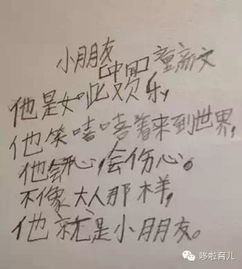 小朋友
童新文
他是如此欢乐,
他笑嘻嘻着来到世界,
他会开心会伤心。
不像大人那样,
他就是小朋友。
哆啦育儿